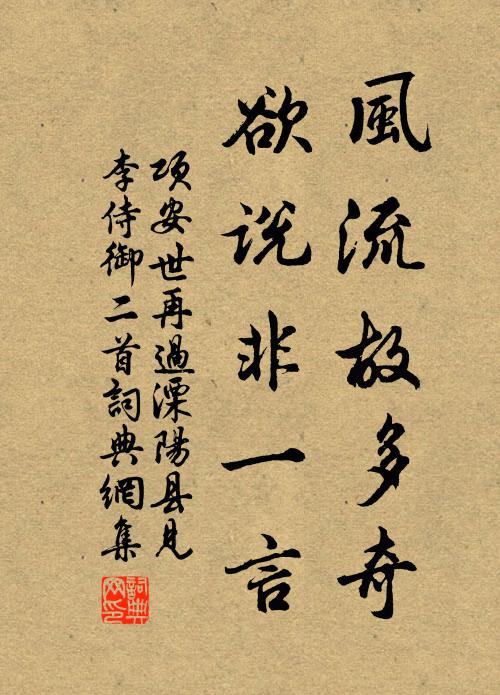 風流故多奇
欲説非一言
項安世再過溧陽县見
李侍御二首詞典網集
詞典
网印